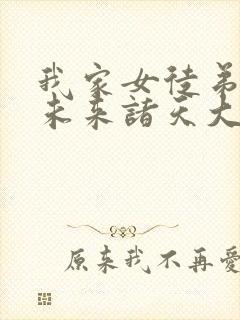 我家女徒弟
未来諸天大
原来我不再愛